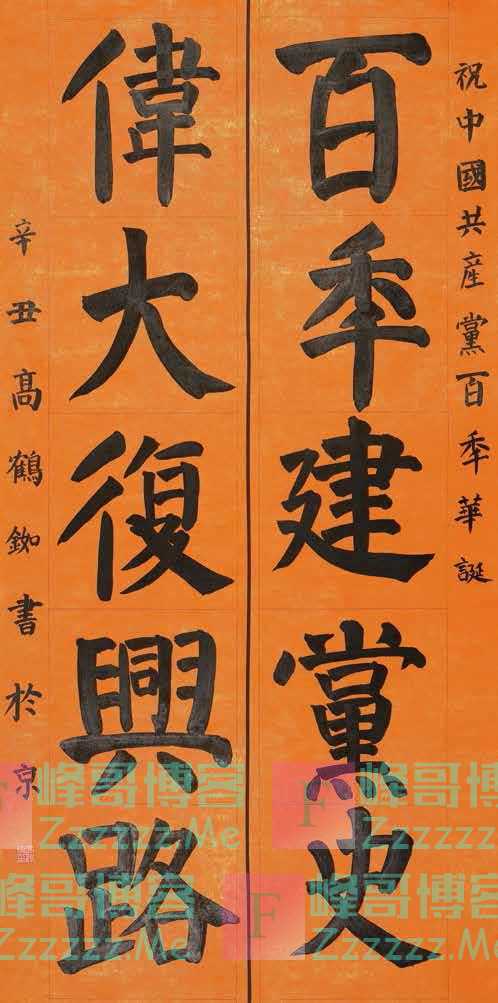 祝中國共産黨百秊華誕
百秊建黨史
偉大復興路
辛丑高鶴書於京
F
峰哥博客
Zzzzzz.Me
F
峰哥博客
Zzzzzz
峰哥博客
Zzzzzz.Me
F
峰哥博客
Zzzzzz.Me